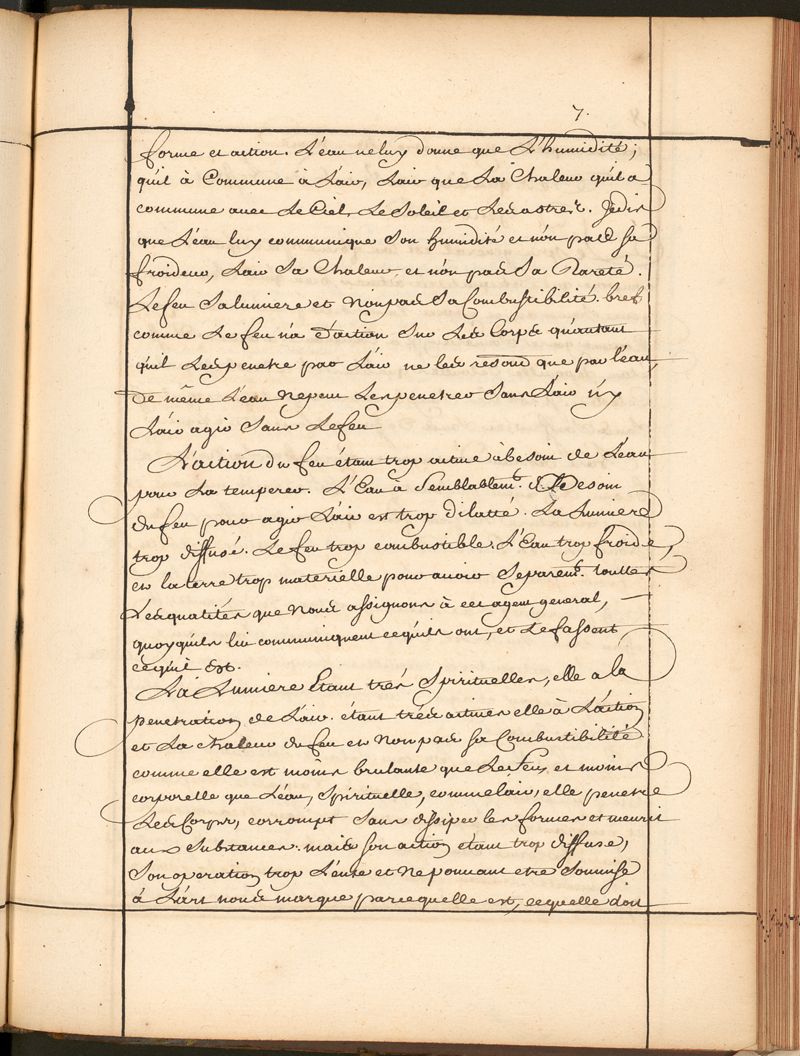 7.
forme et action. L'eau ne luy donne que L'humidité;
qu'il à Commune à L'air, L'air que La Chaleur qu'il a
commune avec Le Ciel, Le Soleil et Les astres. Je dis
que L'eau luy communique Son humidité et non pas sa
froideur, L'air Sa Chaleur et non pas Sa Rareté.
Le feu Sa lumiere et Non pas Sa Combustibilité. bref
comme Le feu n'a d'action Sur Les Corps qu'autant
qu'il Les penetre par L'air ne les resoud que par l'eau,
De même L'eau ne peut Les penetrer Sans L'air ny
L'air agir Sans Le feu
L'action du feu étant trop active à besoin de L'eau
pour La temperer. L'Eau à Semblablemt. Besoin
du feu pour agir L'air est trop dilatté. La Lumiere
trop diffuse. Le feu trop combustible. L'Eau trop froide,
et la terre trop materielle pour avoir Separemt. touttes
Les qualités que Nous assignons à cet agent general,
quoy qu'ils lui communiquent ce qu'ils ont, et Le fassent
ce qu'il est.
La Lumiere Etant trés Spirituelle, elle a la
penetration de L'air. étant trés active elle à L'action
et La chaleur du feu et Non pas sa Combustibilité
comme elle est moins brulante que Le feu, et moins
corporelle que L'eau, Spirituelle, comme l'air, elle penetre
Les Corps, corrompt Sans dissiper les formes et meurit
aux Substances. mais son action étant trop diffuse,
Son operation trop Lente et Ne pouvant etre Soumise
à L'art nous marque par ce quelle est, ce quelle doit